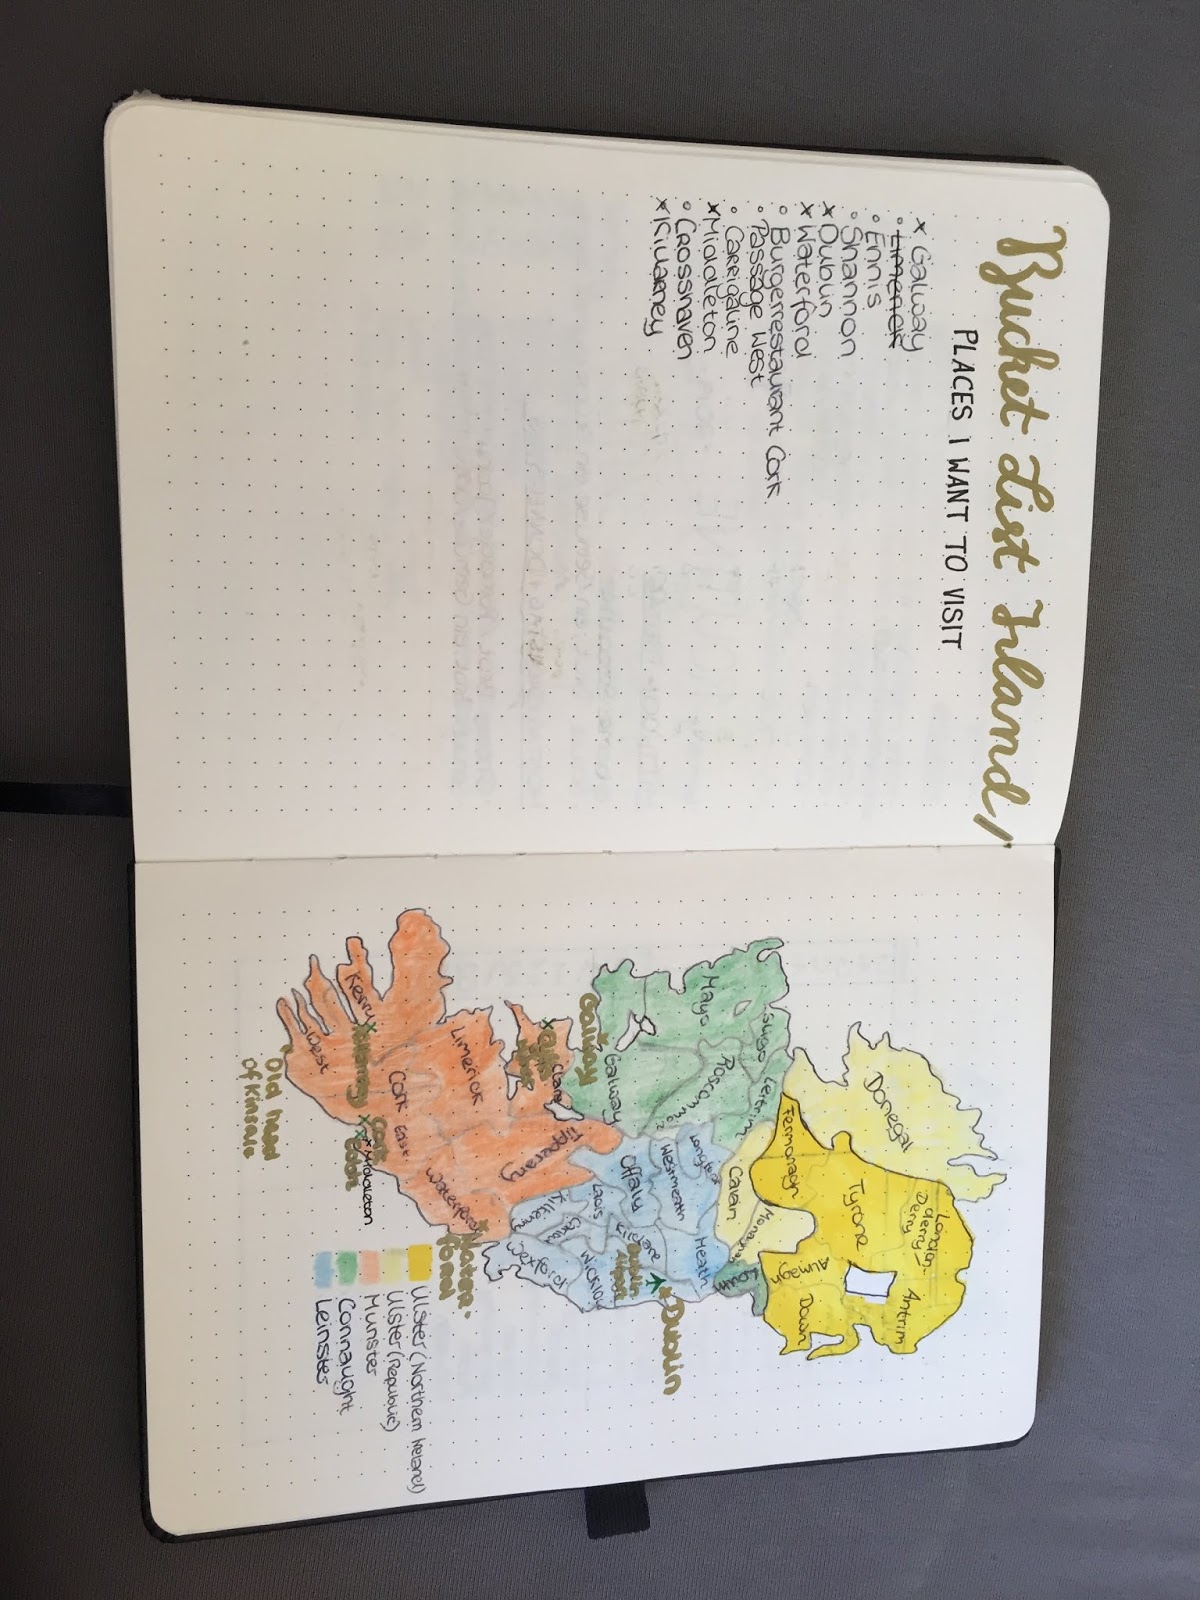 Bucket List Irland
PLACES I WANT TO VISIT
x Galway
• Limerick
• Ennis
• Shannon
x Dublin
x Waterford
• Burgerrestaurant Cork
• Passage West
• Carrigaline
x Middleton
• Crosshaven
x Killarney
Donegal
London-
derry
Derry
Antrim
Tyrone
Fermanagh
Armagh
Down
Monaghan
Cavan
Louth
Sligo
Leitrim
Mayo
Roscommon
Longford
Westmeath
Meath
Galway
Galway
Offaly
Kildare
Dublin
Dublin
Airport
Laois
Wicklow
Clare
Tipperary
Kilkenny
Carlow
Wexford
Limerick
Waterford
Water-
ford
Kerry
Killarney
Cork
East
Cork
Cobh
Middleton
West
Old head
of Kinsale
Ulster (Northern Ireland)
Ulster (Republic)
Munster
Connaught
Leinster